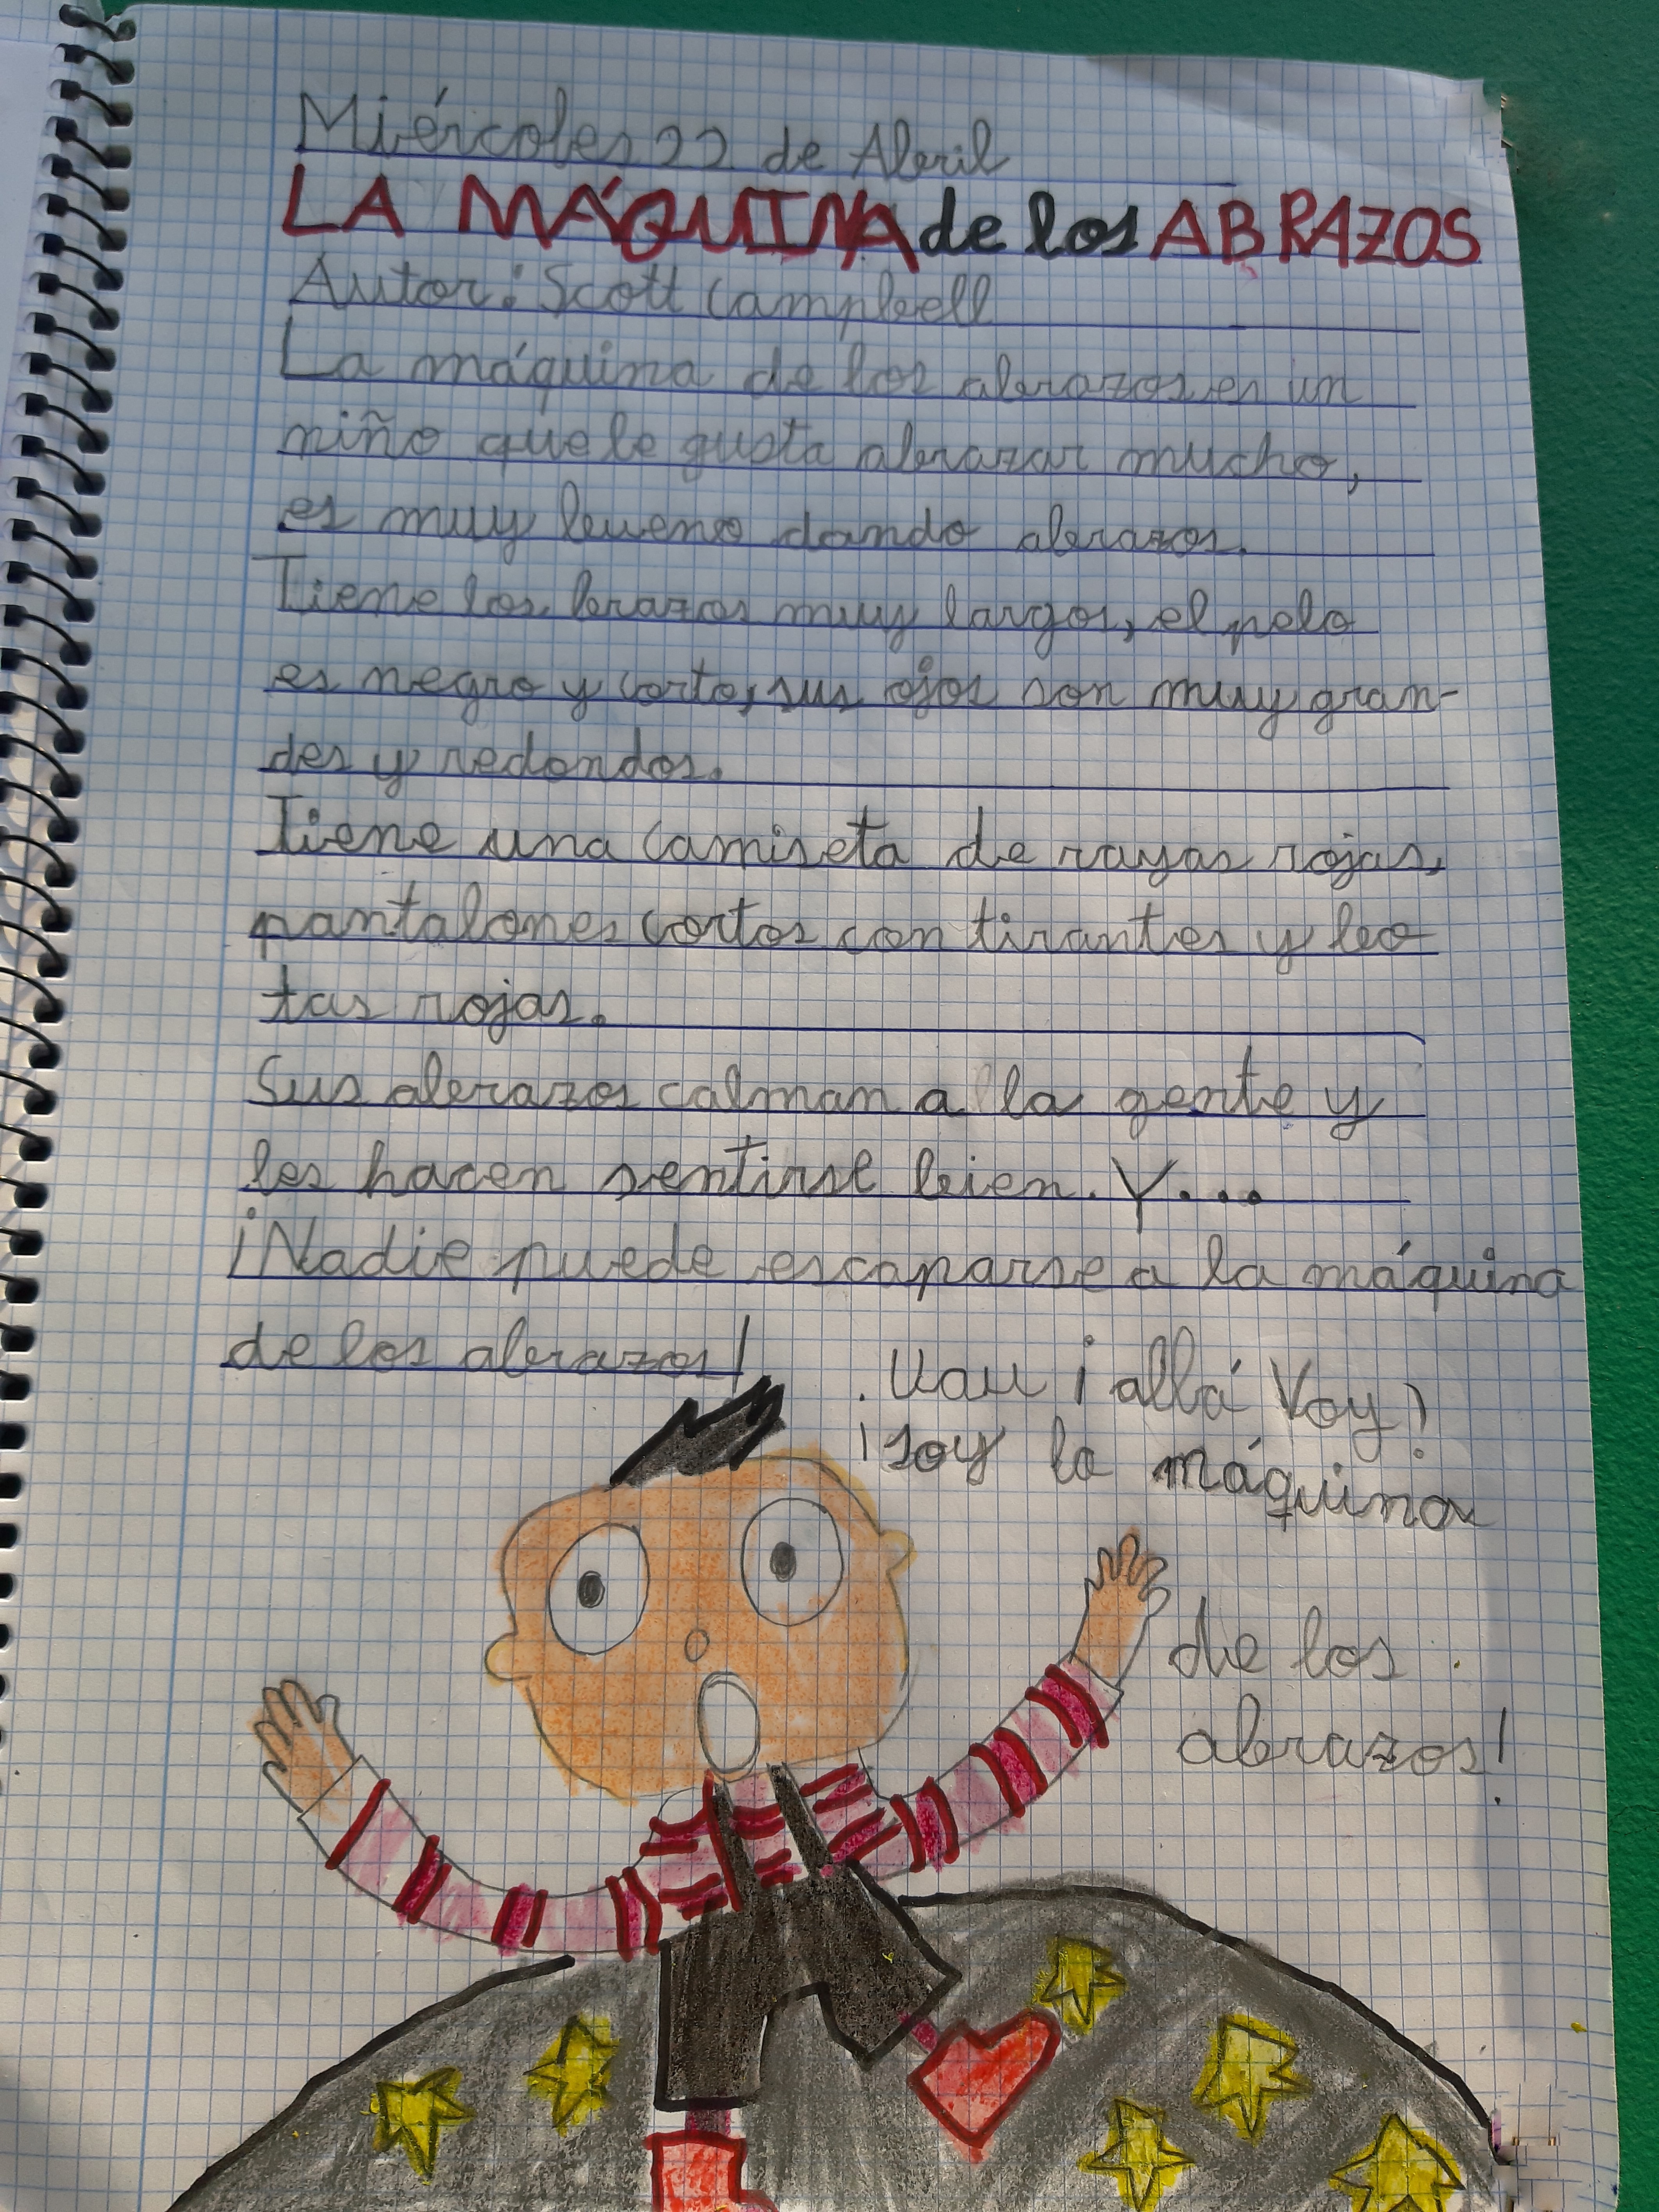 Miércoles 22 de Abril
LA MÁQUINA de los ABRAZOS
Autor: Scott Campbell
La máquina de los abrazos es un
niño que le gusta abrazar mucho,
es muy bueno dando abrazos.
Tiene los brazos muy largos, el pelo
es negro y corto, sus ojos son muy gran-
des y redondos.
Tiene una camiseta de rayas rojas,
pantalones cortos con tirantes y leo
tas rojas.
Sus abrazos calman a la gente y
les hacen sentirse bien. Y...
¡Nadie puede escaparse a la máquina
de los abrazos!
. Uau ¡allá Voy!
¡soy la máquina
de los
abrazos!